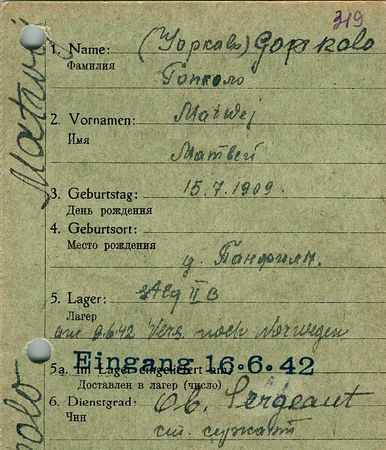 319
1. Name: (Горкаво) Gorkolo
Фамилия
Гопколо
2. Vornamen: Matwej
Имя
Матвей
3. Geburtstag: 15.7.1909.
День рождения
4. Geburtsort:
Место рождения
д. Панфилы.
5. Lager: Stalag II B
Лагер
am 9.6.42 Vers. nach Norwegen
Eingang 16.6.42
5a. Im Lager eingeliefert am:
Доставлен в лагер (число)
6. Dienstgrad: Ob. Sergeant
Чин
ст. сержант